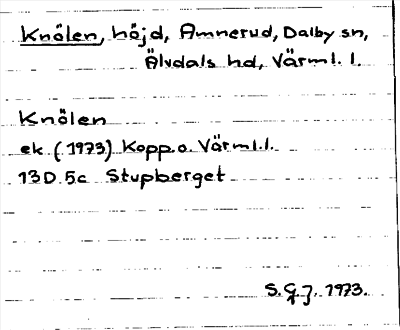 Knölen, höjd, Amnerud, Dalby sn,
Älvdals hd, Värml. l.
Knölen
ek. (1973) Kopp. o. Värml.l.
13D 5c Stupberget
S.G.J. 1973.